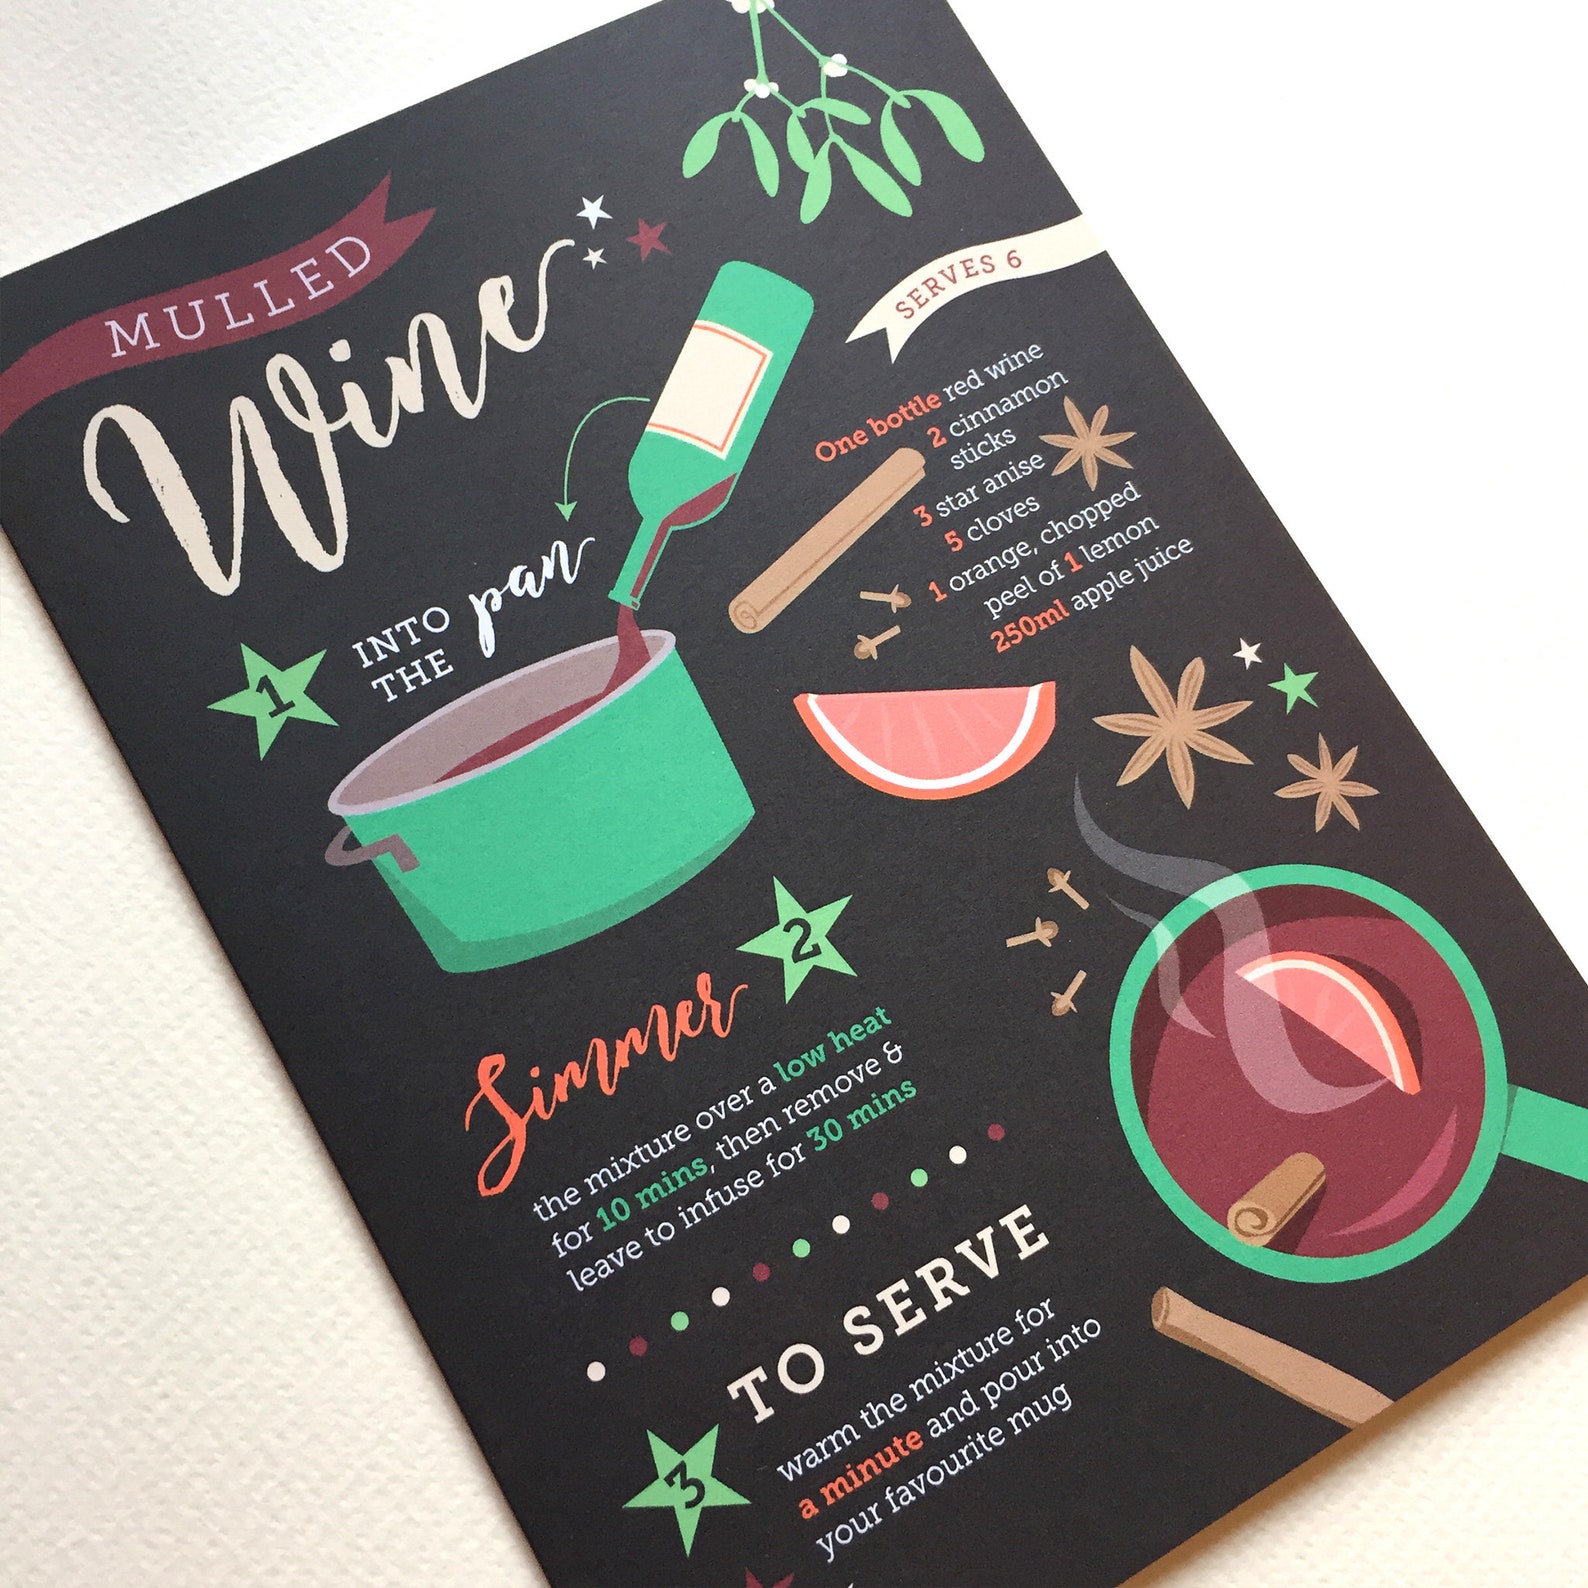 MULLED
Wine
SERVES 6
One bottle red wine
2 cinnamon
sticks
3 star anise
5 cloves
1 orange, chopped
peel of 1 lemon
250ml apple juice
1
INTO
THE pan
2
Simmer
the mixture over a low heat
for 10 mins, then remove &
leave to infuse for 30 mins
TO SERVE
3
warm the mixture for
a minute and pour into
your favourite mug